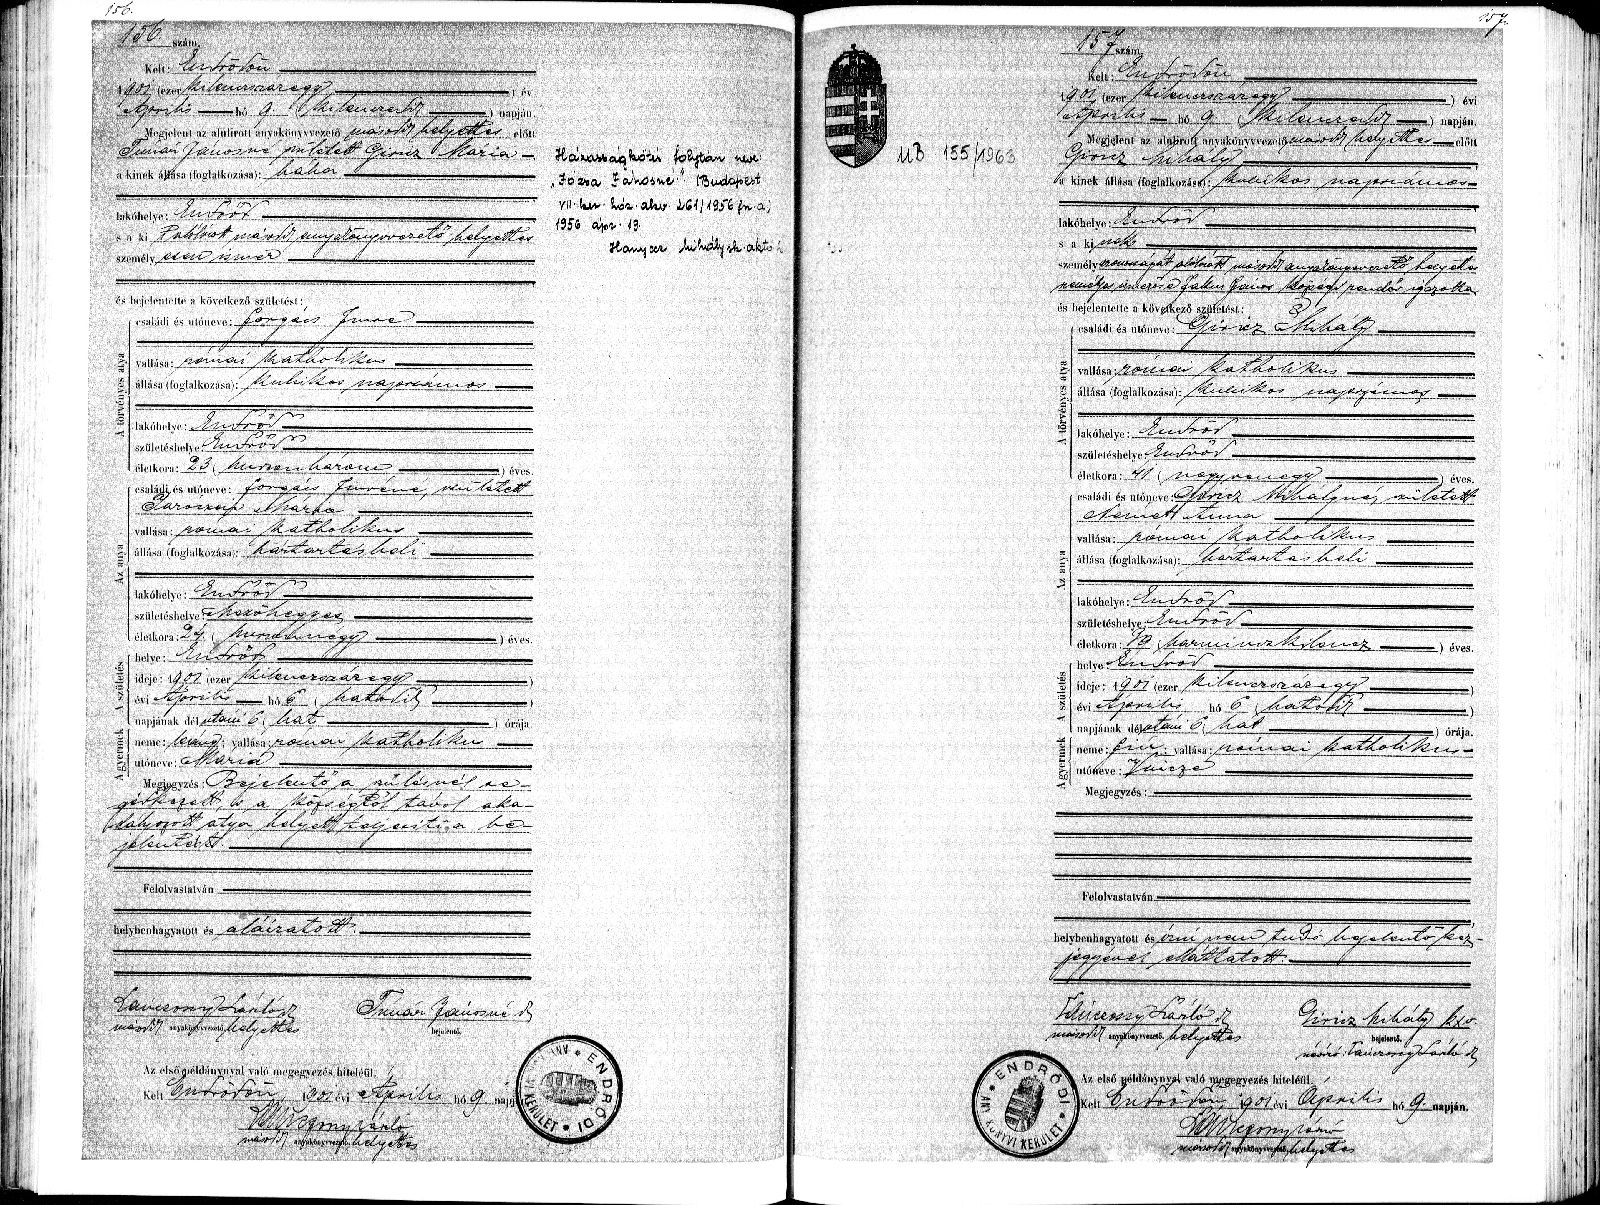 156.
156. szám.
Kelt: Endrődön
1901 (ezer kilenczszázegy ) év
Április hó 9 (kilenczedik ) napján.
Megjelent az alulirott anyakönyvvezető másodk helyettes előtt
Tímár Jánosné született Giricz Mária
a kinek állása (foglalkozása): bába
lakóhelye: Endrőd
s a ki alólírott másodk anyakönyvvezető helyettes
személyesen ismer
és bejelentette a következő születést:
A törvényes atya
családi és utóneve: Forgács Imre
vallása: római katholikus
állása (foglalkozása): kubikos napszámos
lakóhelye: Endrőd
születéshelye: Endrőd
életkora: 23 (huszonhárom ) éves.
Az anya
családi és utóneve: Forgács Imréné, született
Mária
vallása: római katholikus
állása (foglalkozása): háztartásbeli
lakóhelye: Endrőd
születéshelye: Mezőhegyes
életkora: 24 (huszonnégy ) éves.
A születés
helye: Endrőd
ideje: 1901 (ezer kilenczszázegy )
évi Április hó 6 (hatodik )
napjának dél utáni 6 (hat ) órája.
A gyermek
neme: leány; vallása: római katholikus
utóneve: Mária
Megjegyzés: Bejelentő a szülésnél se-
gédkezett, s a községtől távol aka-
dályozott atya helyett teljesíti a be-
jelentést.
Felolvastatván
helybenhagyatott és aláíratott.
Lanczony László
másodk anyakönyvvezető helyettes
Tímár Jánosné
bejelentő.
Az első példánynyal való megegyezés hiteléül.
Kelt Endrődön, 1901 évi Április hó 9 napj
Lanczony László
másodk anyakönyvvezető helyettes
ENDRŐDI KERÜLET
Házasságkötés folytán neve
"Józsa Jánosné" (Budapest
VII. ker. ház. akv. 261/1956 fsz. a.)
1956 ápr. 19.
Mihály
UB 155/1963
157.
157 szám.
Kelt: Endrődön
1901 (ezer kilenczszázegy ) évi
Április hó 9 (kilenczedik ) napján.
Megjelent az alulirott anyakönyvvezető másodk helyettes előtt
Giricz Mihály
a kinek állása (foglalkozása): kubikos napszámos
lakóhelye: Endrőd
s a kinek
személyazonosságát alólírott másodk anyakönyvvezető helyettes
személyes ismerőse János községi rendőr igazolta
és bejelentette a következő születést:
A törvényes atya
családi és utóneve: Giricz Mihály
vallása: római katholikus
állása (foglalkozása): kubikos napszámos
lakóhelye: Endrőd
születéshelye: Endrőd
életkora: 41 (negyvenegy ) éves.
Az anya
családi és utóneve: Giricz Mihályné, született
Németh Anna
vallása: római katholikus
állása (foglalkozása): háztartásbeli
lakóhelye: Endrőd
születéshelye: Endrőd
életkora: 39 (harminczkilencz ) éves.
A születés
helye: Endrőd
ideje: 1901 (ezer kilenczszázegy )
évi Április hó 6 (hatodik )
napjának dél utáni 6 (hat ) órája.
A gyermek
neme: fiu; vallása: római katholikus
utóneve: Vincze
Megjegyzés:
Felolvastatván
helybenhagyatott és írni nem tudó bejelentő kéz-
jegyével elláttatott.
Lanczony László
másodk anyakönyvvezető helyettes
Giricz Mihály kzv.
bejelentő.
névíró: Lanczony László
Az első példánynyal való megegyezés hiteléül.
Kelt Endrődön 1901 évi Április hó 9. napján.
Lanczony László
másodk anyakönyvvezető helyettes
ENDRŐDI ANYAKÖNYVI KERÜLET